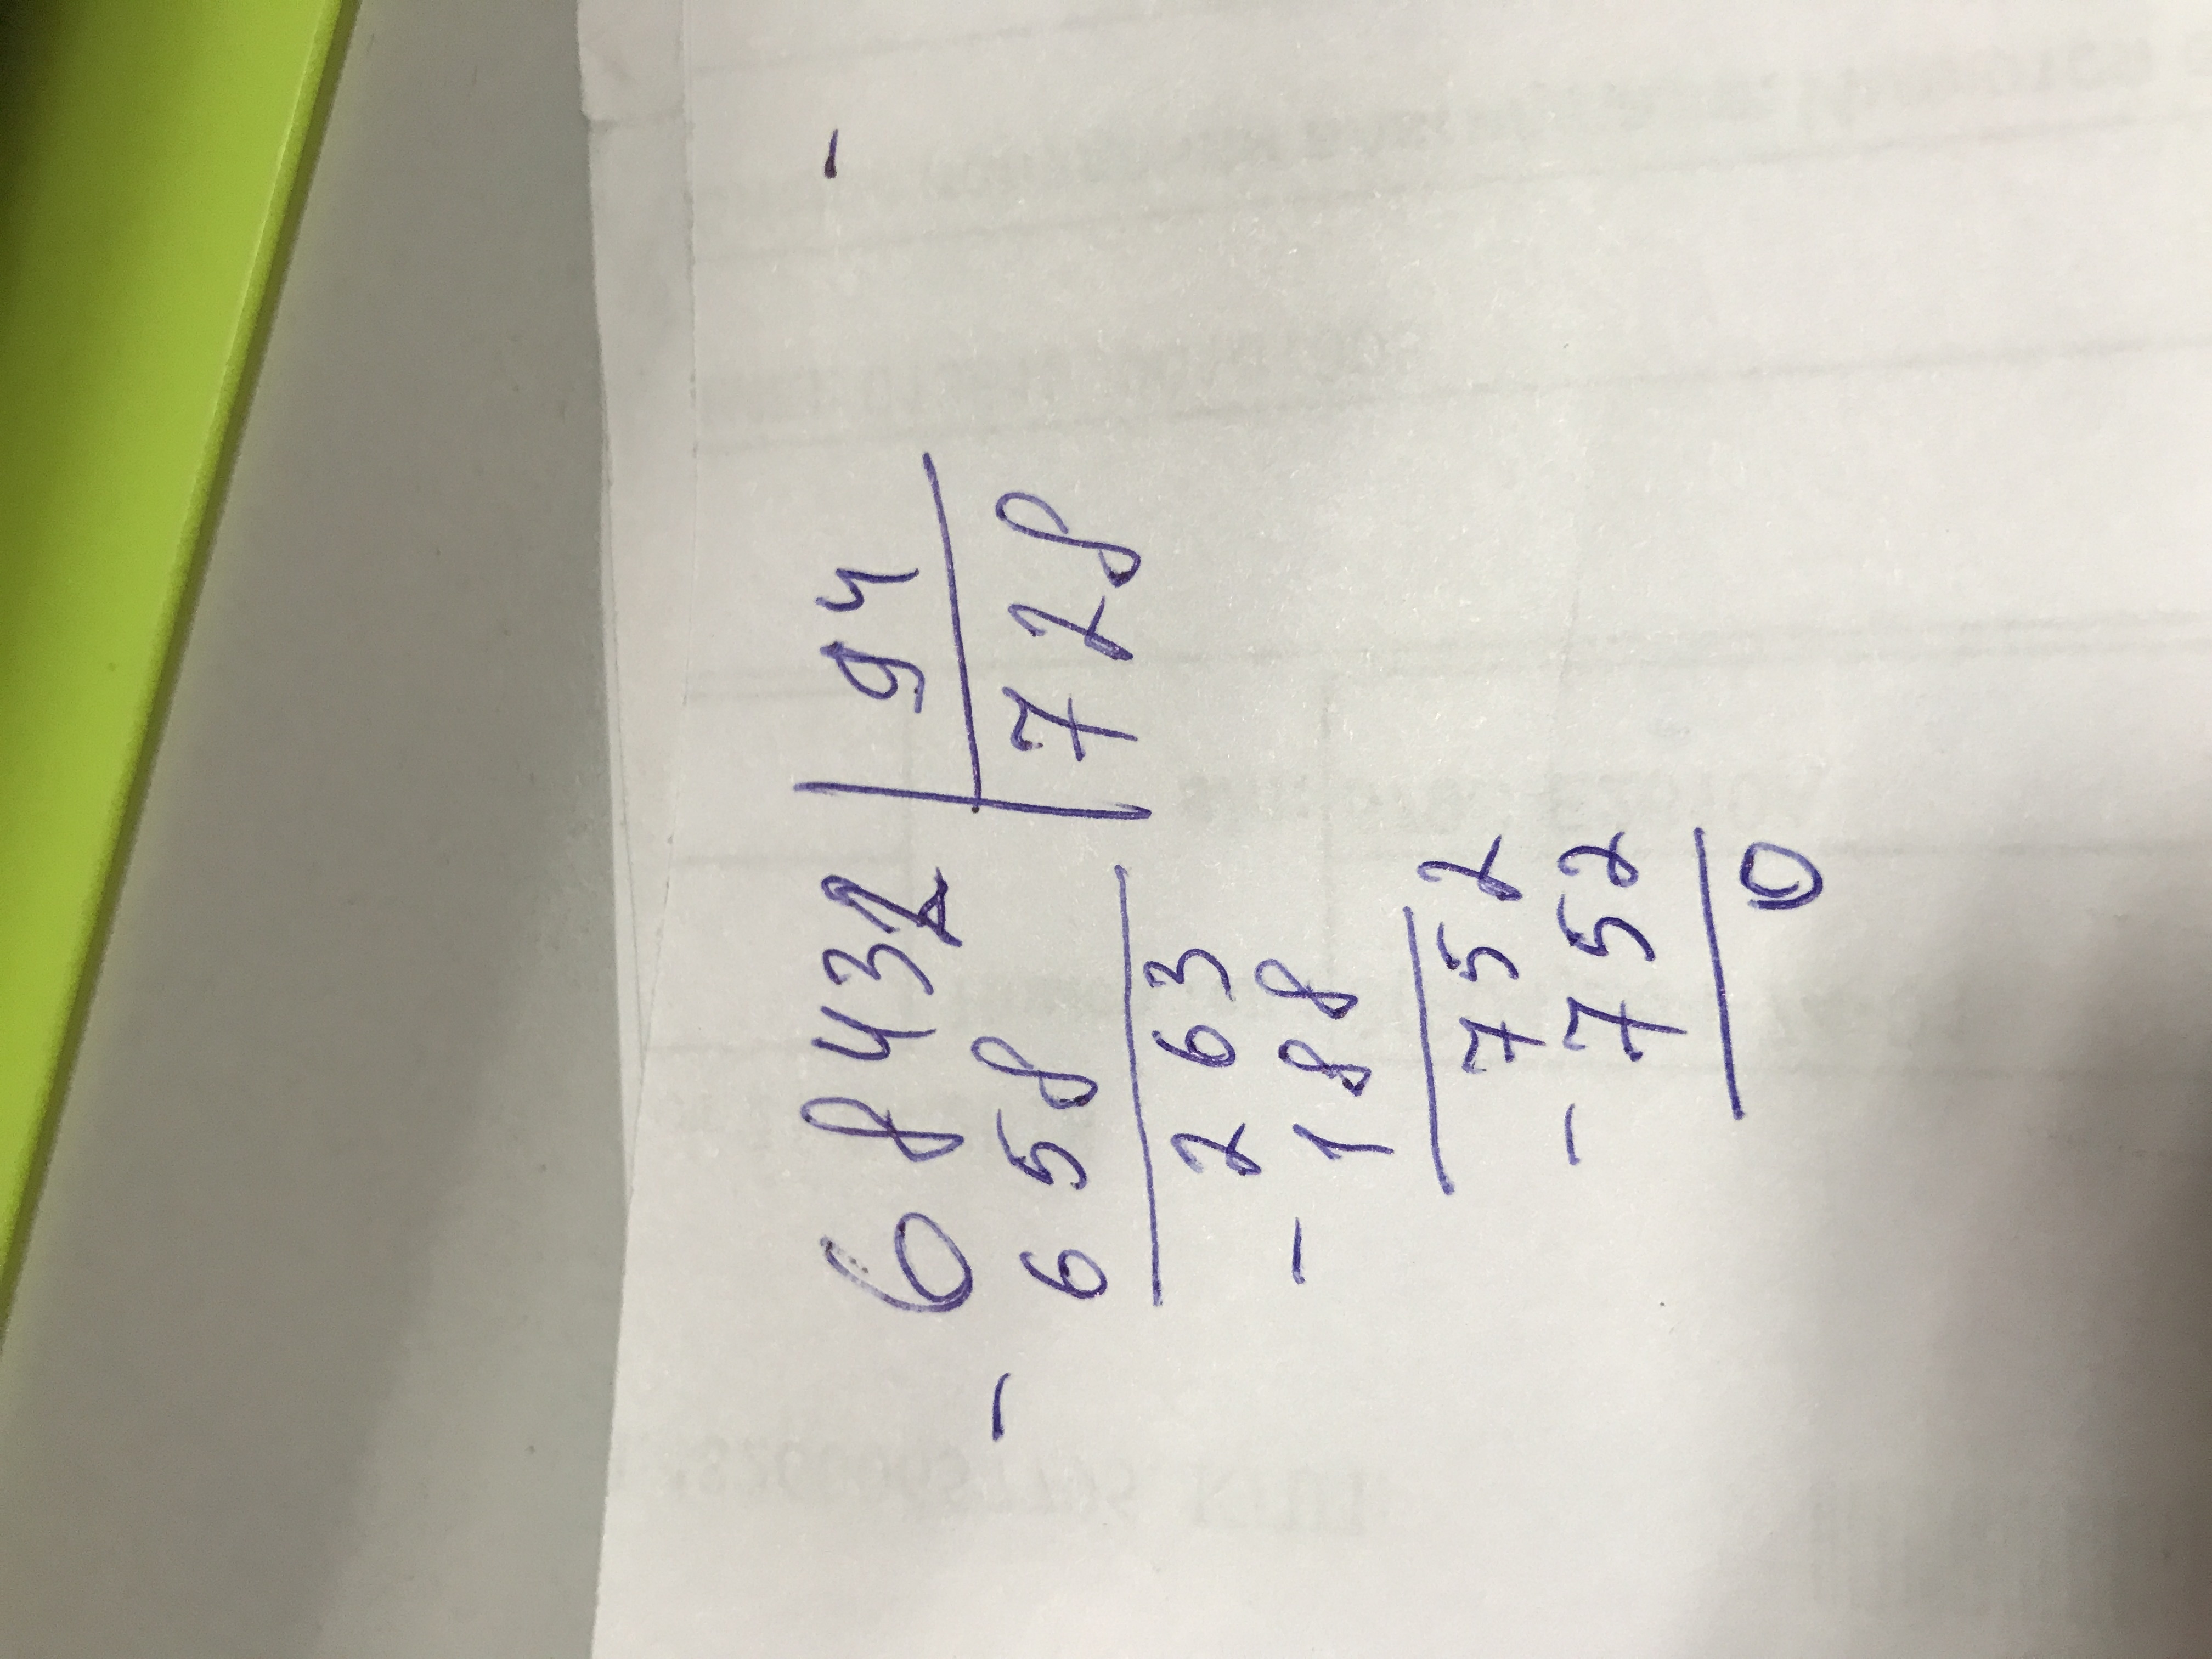 68432 | 94
- 658 | 728
263
- 188
752
- 752
0